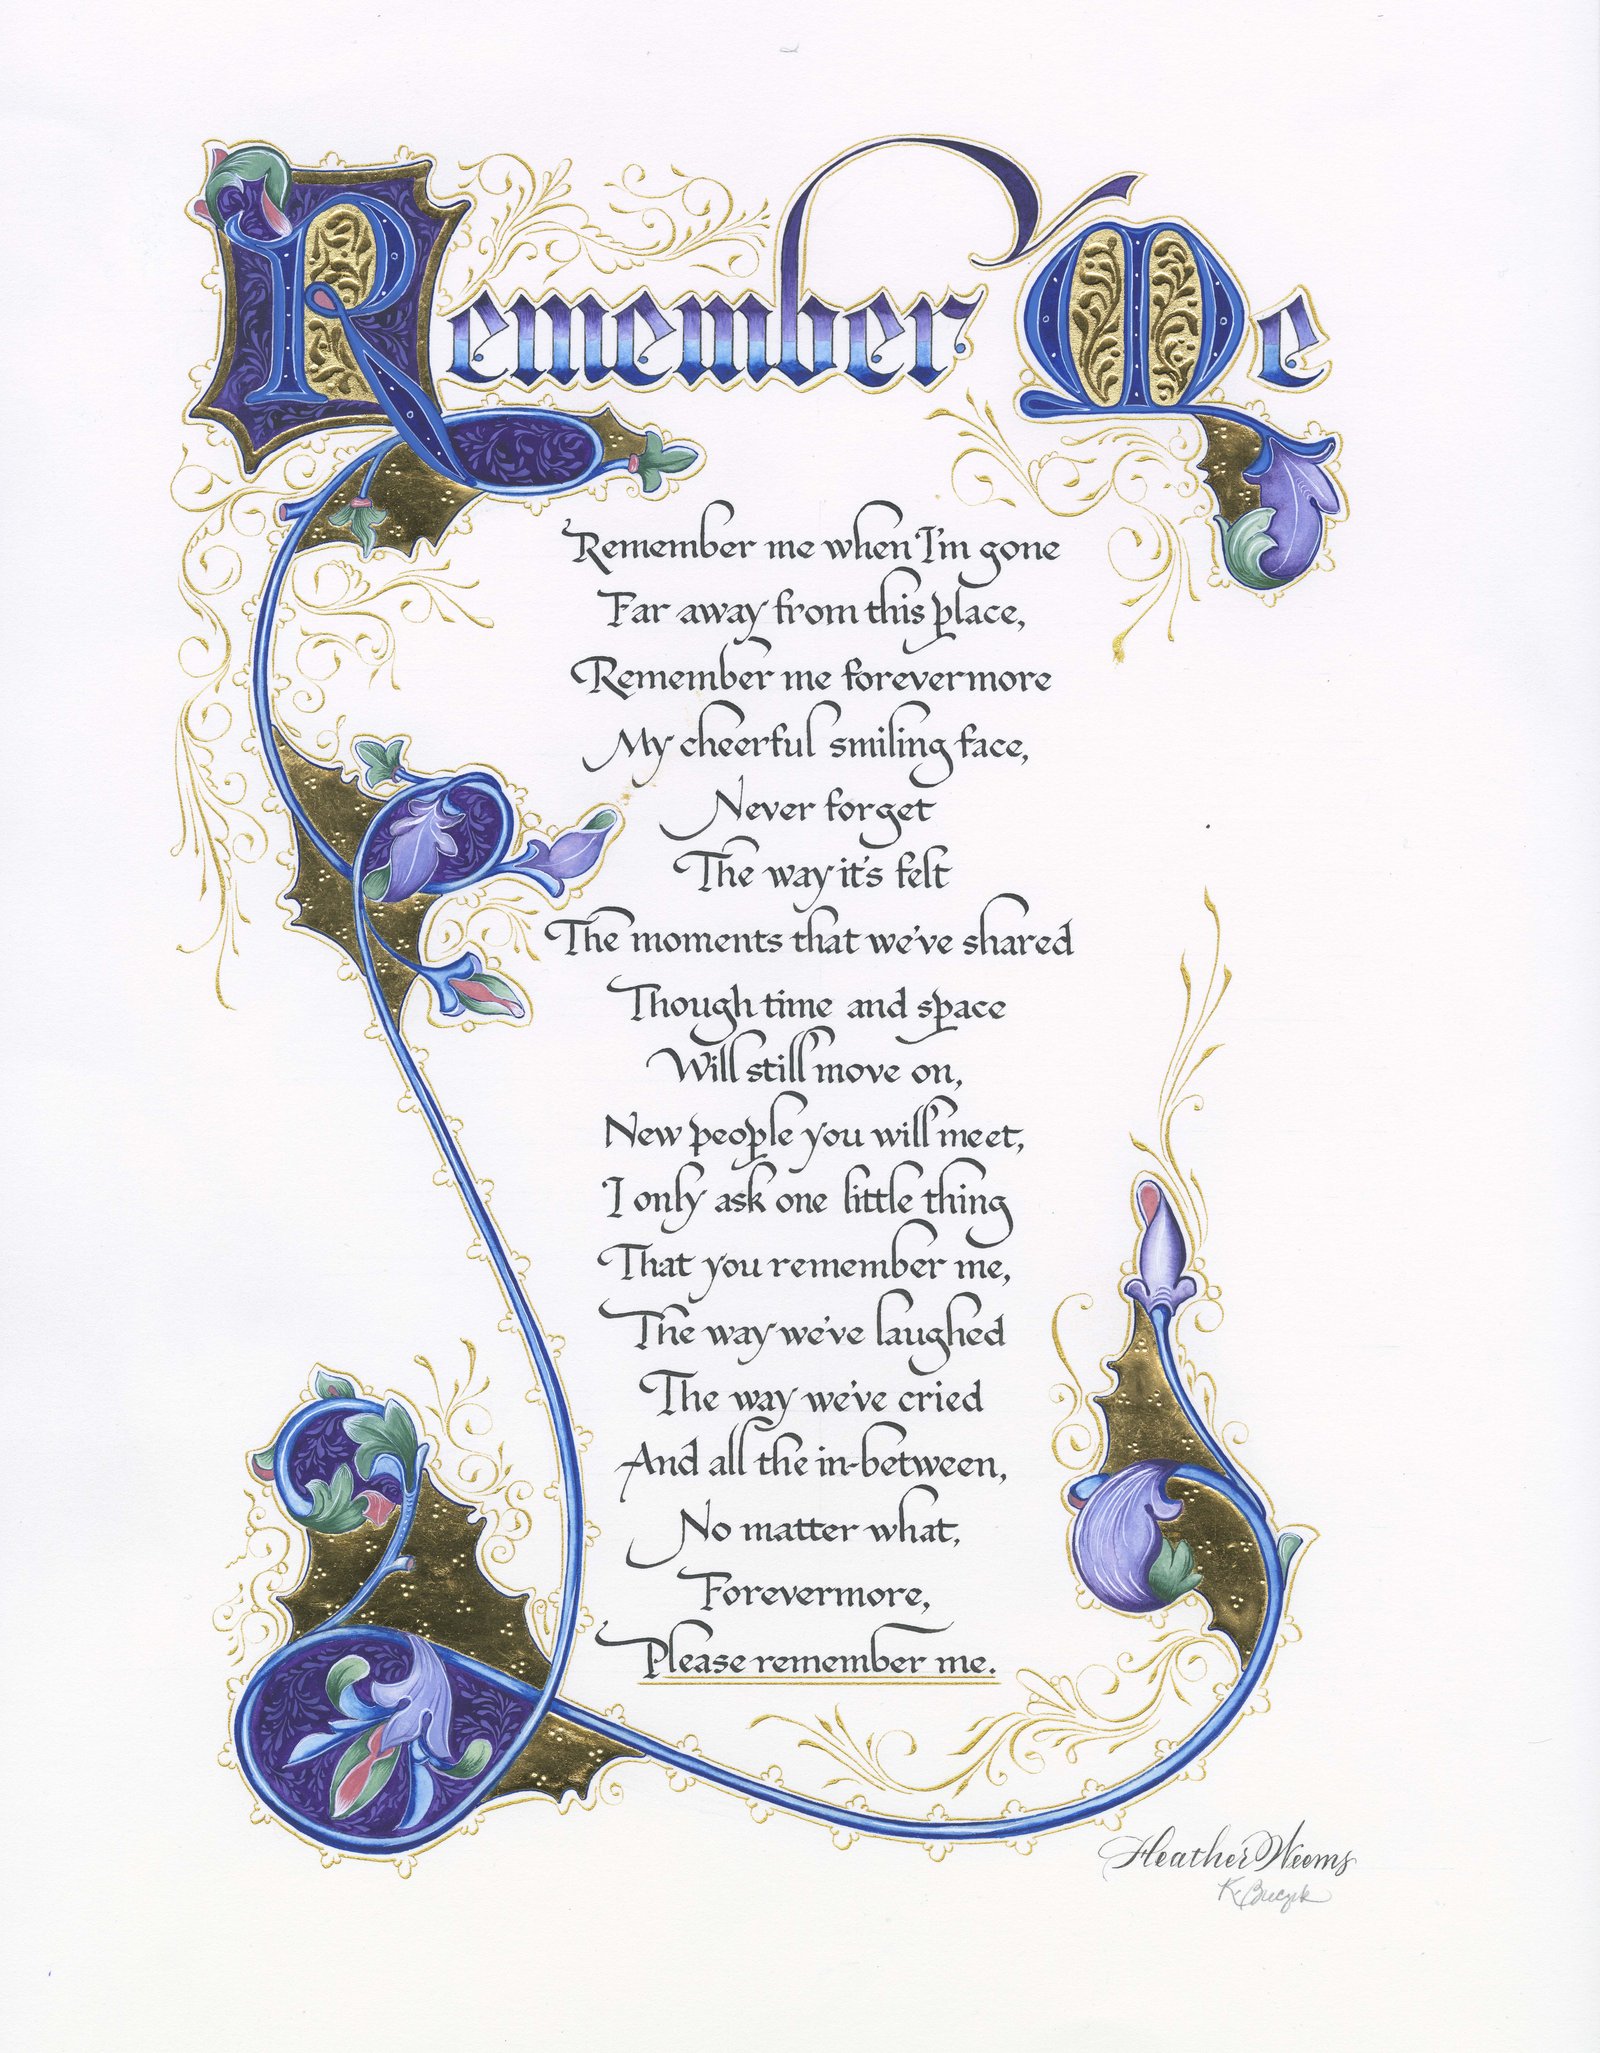 Remember Me
Remember me when I'm gone
Far away from this place,
Remember me forevermore
My cheerful smiling face,
Never forget
The way it's felt
The moments that we've shared
Though time and space
Will still move on,
New people you will meet,
I only ask one little thing
That you remember me,
The way we've laughed
The way we've cried
And all the in-between,
No matter what,
Forevermore,
Please remember me.
Heather Weems
K. Buczek